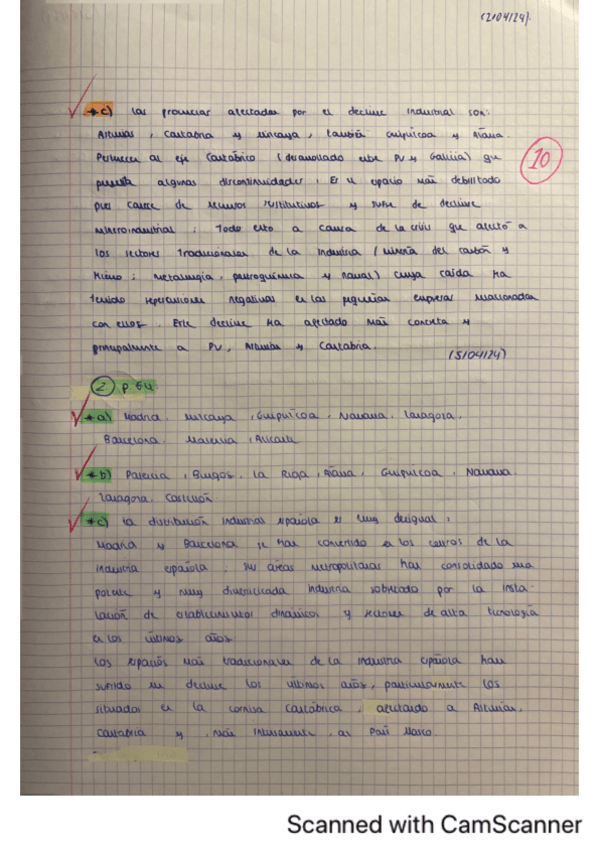 (2/04/24).
→c) Las provincias afectadas por el declive industrial son:
Asturias, Cantabria y Vizcaya, también Guipúzcoa y Álava.
Pertenecen al eje Cantábrico (desarrollado entre PV y Galicia) que
presenta algunas discontinuidades. Es el espacio más debilitado
pues carece de recursos sustitutivos y sufre de declive
macroindustrial. Todo esto a causa de la crisis que afectó a
los sectores tradicionales de la industria (minería del carbón y
hierro; metalurgia, petroquímica y naval) cuya caída ha
tenido repercusiones negativas en las pequeñas empresas relacionadas
con ellos. Este declive ha afectado más concreta y
principalmente a PV, Asturias y Cantabria.
10
(5/04/24)
2 p.64.
*a) Madrid. Vizcaya, Guipúzcoa, Navarra. Zaragoza.
Barcelona. Valencia, Alicante
*b) Palencia, Burgos. La Rioja, Álava, Guipúzcoa, Navarra.
Zaragoza. Castellón.
*c) La distribución industrial española es muy desigual.
Madrid y Barcelona se han convertido en los centros de la
industria española. Sus áreas metropolitanas han consolidado una
potente y muy diversificada industria sobretodo por la insta-
lación de establecimientos dinámicos y sectores de alta tecnología
en los últimos años
Los espacios más tradicionales de la industria española han
sufrido un declive los últimos años, particularmente los
situados en la cornisa cantábrica, afectando a Asturias,
Cantabria y, más intensamente, al País Vasco.
Scanned with CamScanner